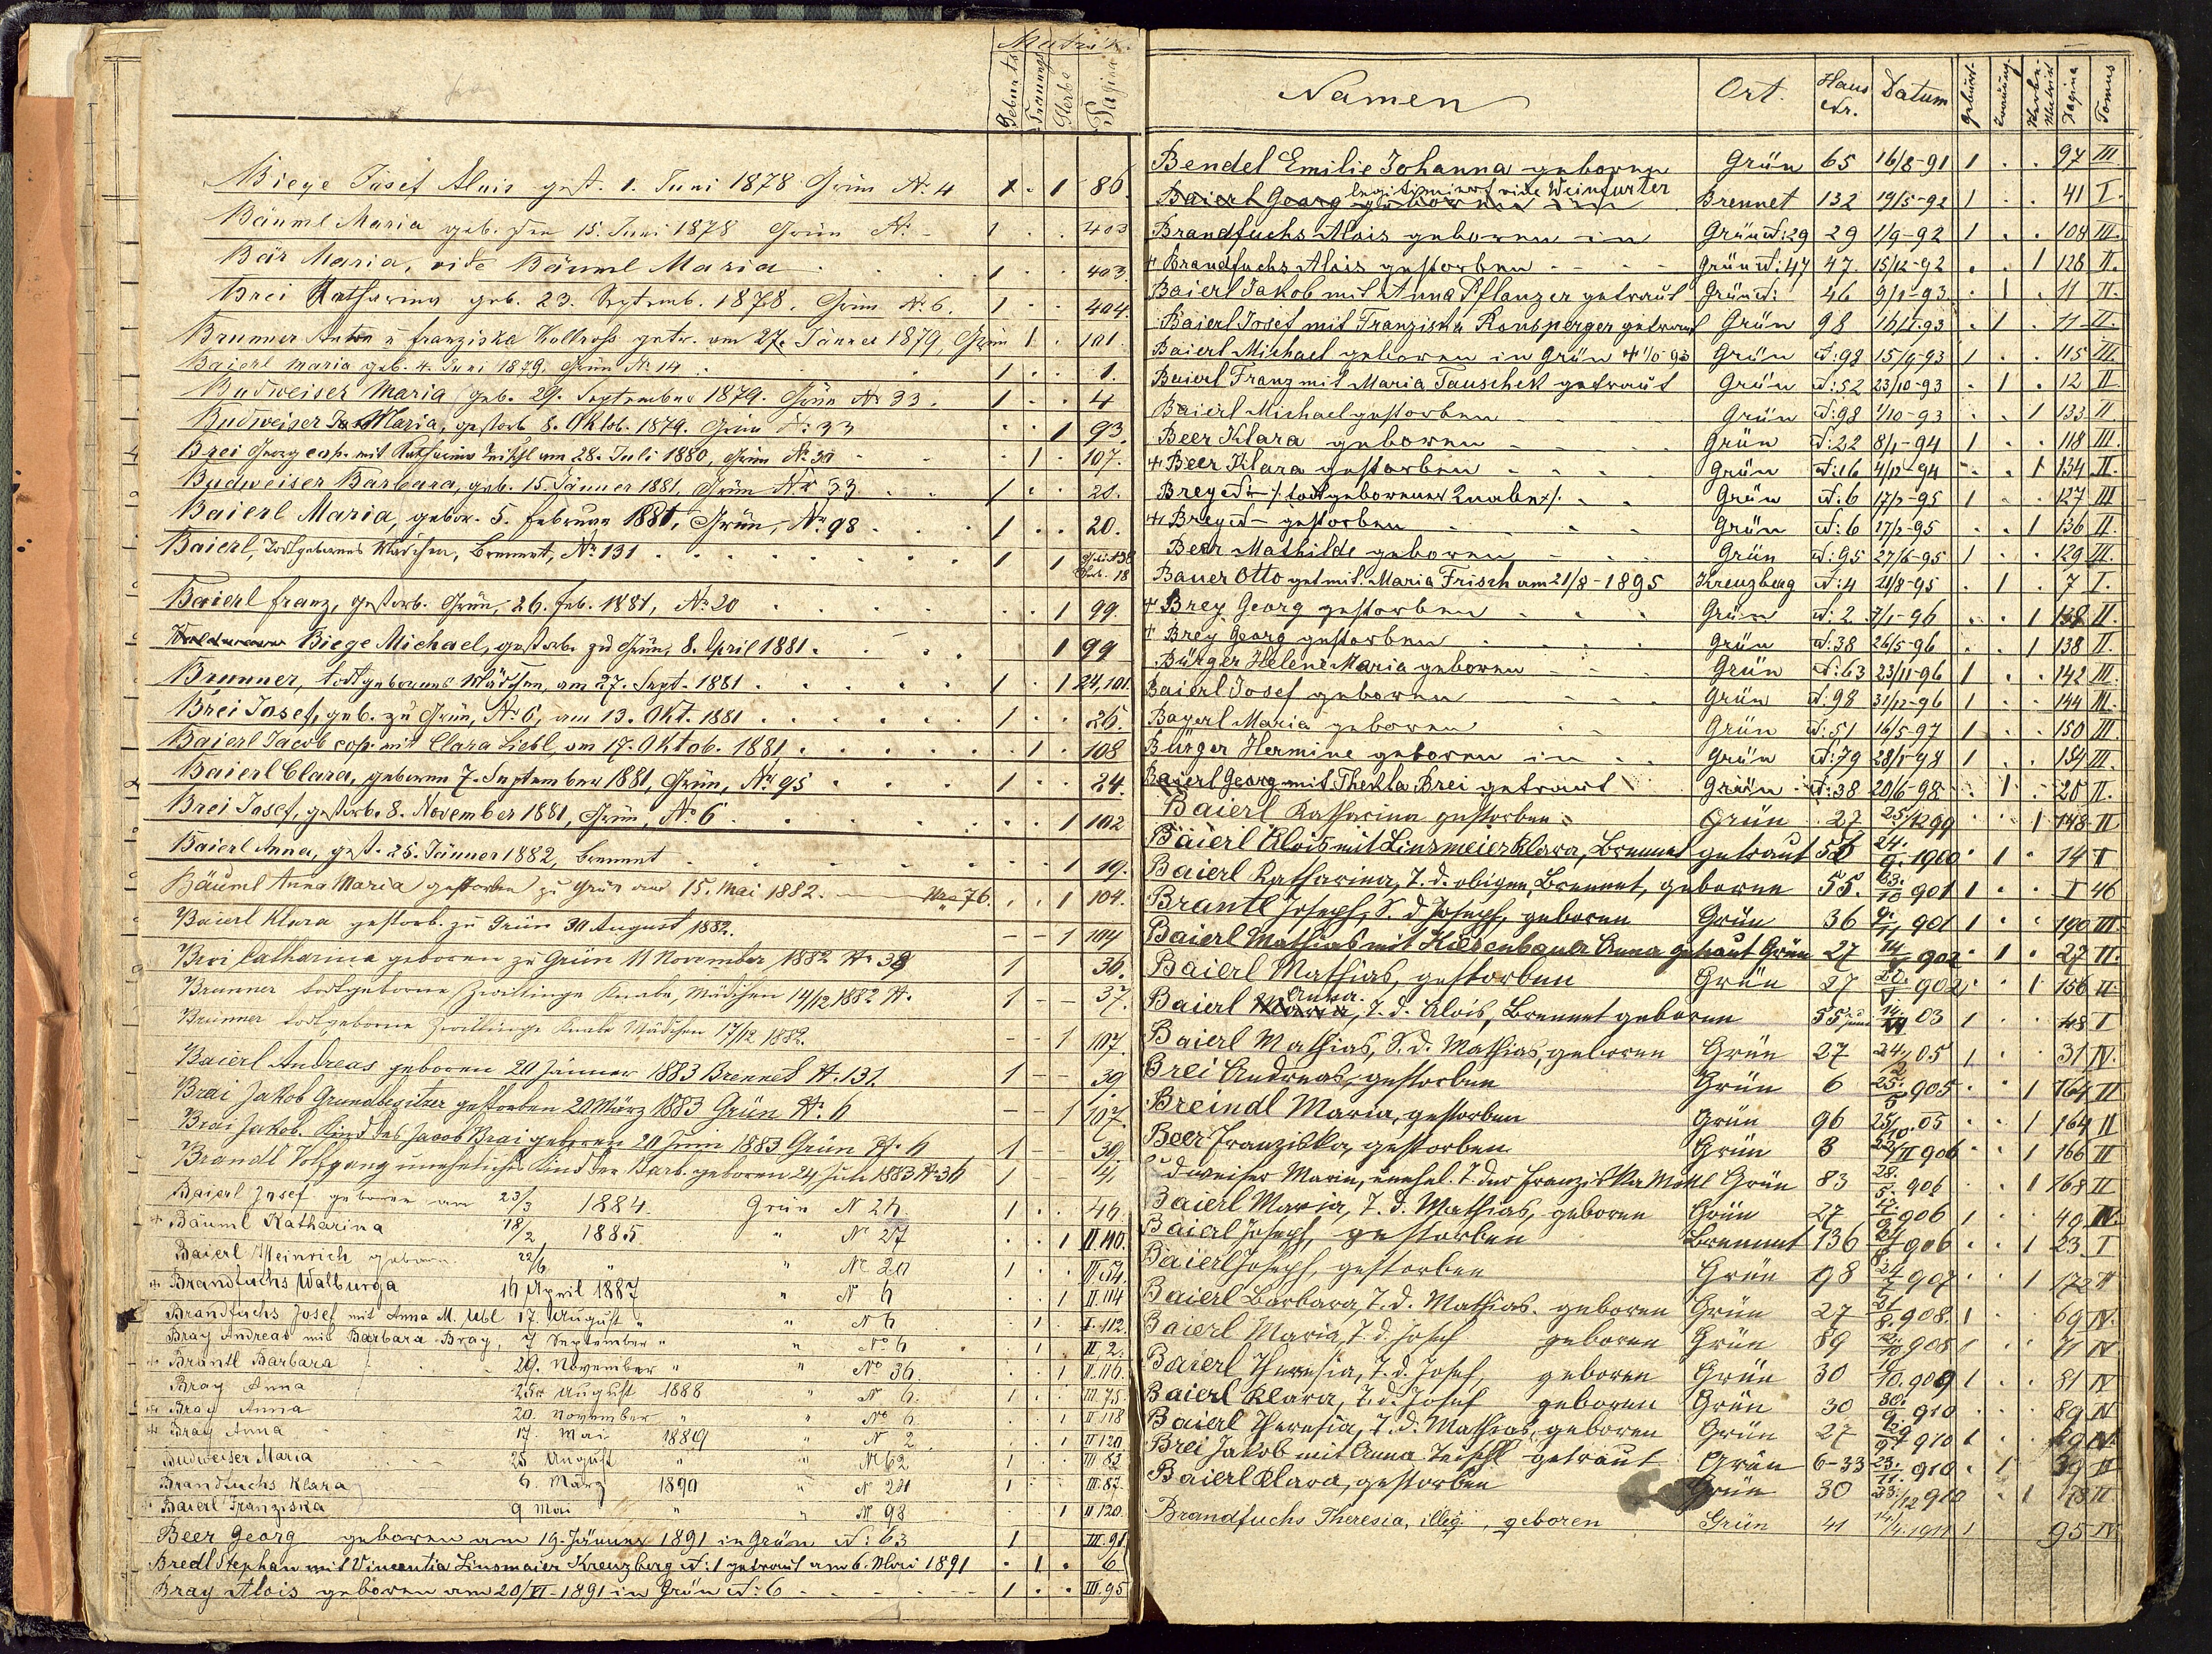 Matrik.
Geburts Trauungs Sterbe Pagina
Biege Josef Alois gest. 1. Juni 1878 Grün No. 4 1 . 1 86
Bäuml Maria geb. den 15. Juni 1878 Grün No. - 1 . . 403
Bär Maria, vide Bäuml Maria 1 . . 403
Brei Katharina geb. 23. Septemb. 1878, Grün No. 6. 1 . . 404
Brunner Anton u franziska Kollross getr. am 27. Jänner 1879, Grün 1 . 101.
Baierl Maria geb. 4. Juni 1879. Grün No. 14 1 . . 1.
Budweiser Maria, geb. 29. September 1879. Grün No 33. 1 . . 4
Budweiser Maria, gestorb. 8. Oktob. 1879. Grün No: 33 . . 1 93.
Brei Georg cop. mit Katharina am 28. Juli 1880, Grün No. 30 . 1 . 107.
Budweiser Barbara, geb. 15. Jänner 1881, Grün No 33 1 . . 20.
Baierl Maria, gebor. 5. februar 1881, Grün, No. 98 1 . . 20.
Baierl, Todtgebornes Mädchen, Brennet, No. 131 1 1 18
Baierl franz, gestorb. Grün, 26. feb. 1881, No. 20 . . 1 99.
Biege Michael, gestorb. zu Grün, 8. April 1881. 1 99
Brunner, todtgebornes Mädchen, am 27. Sept. 1881 1 . 1 24,101.
Brei Josef, geb. zu Grün, No. 6, am 13. Okt. 1881 1 . . 26.
Baierl Jacob cop. mit Clara Liebl, am 17. Oktob. 1881, . 1 . 108
Baierl Clara, geboren 7. September 1881, Grün, No. 95 1 . . 24.
Brei Josef, gestorb. 8. November 1881, Grün, No. 6 . . 1 102
Baierl Anna, gest. 25. Jänner 1882, Brennet . . 1 19.
Bäuml Anna Maria gestorben zu Grün am 15. Mai 1882. No 76. . . 1 104.
Baierl Klara gestorb. zu Grün 30 August 1882. - - 1 104
Brei Catharina geboren zu Grün 11 November 1882 No 38 1 36.
Brunner todtgeborne Zwillinge Knabe, Mädchen 17/12 1882 N. 1 - - 37.
Brunner todtgeborne Zwillinge Knabe Mädchen 17/12 1882. - - 1 107.
Baierl Andreas geboren 20 Jänner 1883 Brennet N. 131. 1 - - 39
Brai Jakob Grundbesitzer gestorben 20 März 1883 Grün N. 6 - - 1 107.
Brai Jakob. Kind des Jacob Brai geboren 20 Juni 1883 Grün N. 6 1 - - 39
Brandl Wolfgang uneheliches Kind der Barb. geboren 24, Juli 1883 N. 36 1 - - 41
Baierl Josef geboren am 23/3 1884. Grün N 26. 1 . . 46.
Bäuml Katharina 18/2 1885. " No 27 . . 1 II.110.
Baierl Heinrich geboren 22/6 " " No 20 1 . . III.54.
Brandfuchs Walburga 16 April 1887 " N. 6 . . 1 II.114
Brandfuchs Josef mit Anna M. Ubl 17. August " " N 6 . 1 . I.112.
Bray Andreas mit Barbara Bray, 7 September " " No 6 . 1 II,2.
Brantl Barbara 29. November " " No 36 . . 1 II.116.
Bray Anna 25. August 1888 " N. 6. 1 . . III.75.
Bray Anna 20. November " " No 6 . . 1 II.118
Bray Anna 17. Mai 1889 " N. 2 . . 1 II 120.
Budweiser Maria 25 August " " No 62 1 III 83
Brandfuchs Klara 6. März 1890 " N 29 1 III.87.
Baierl Franziska 9 Mai " " No 98 1 II 120.
Beer Georg geboren am 19. Jänner 1891 in Grün N: 63 1 III.91
Bredl Stephan mit Vincentia Linsmaier Kreuzberg N: 1 getraut am 6. Mai 1891 . 1 . 6
Bray Alois geboren am 20/VI-1891 in Grün N: 6 1 . . III.95
Namen Ort. Haus Nr. Datum Geburt- Trauung- Sterbe- Matrik Pagina Tomus
Bendel Emilie Johanna geboren Grün 65 16/8-91 1 . . 97 III
legitimiert vide Weinfurter
Baierl Georg geboren in Brennet 132 19/5-92 1 . . 41 I.
Brandfuchs Alois geboren in Grün N: 29 29 1/9-92 1 . . 108 III.
+ Brandfuchs Alois gestorben Grün N: 47 47. 15/12-92 . . 1 128 II.
Baierl Jakob mit Anna Pflanzer getraut Grün N: 46 9/1-93 . 1 . 11 II.
Baierl Josef mit Franziska Ronsperger getraut Grün 98 16/1.93 . 1 . 11 II.
Baierl Michael geboren in Grün Grün N: 98 15/9-93 1 . . 115 III.
Baierl Franz mit Maria Tauschek getraut Grün N: 52 23/10-93 . 1 . 12 II
Baierl Michael gestorben Grün N: 98 1/10-93 . . 1 133 II
Beer Klara geboren Grün N: 22 8/1-94 1 . . 118 III.
+ Beer Klara gestorben Grün N: 16 4/12-94 . . 1 134 II.
Brey N- /: todtgeborener Knabe :/. Grün N: 6 17/2-95 1 . . 127 III
+ Brey N- gestorben Grün N: 6 17/2-95 . . 1 136 II.
Beer Mathilde geboren Grün N: 95 27/6-95 1 . . 129 III.
Bauer Otto get mit. Maria Frisch am 21/8-1895 Kreuzberg N: 4 21/8-95 . 1 . 7 I.
+ Brey Georg gestorben Grün N: 2 7/1-96 . . 1 138 II.
+ Brey Georg gestorben Grün N: 38 26/5-96 . . 1 138 II.
Bürger Helene Maria geboren Grün N: 63 23/11-96 1 . . 142 III.
Baierl Josef geboren Grün N: 98 31/12-96 1 . . 144 III.
Bayerl Maria geboren Grün N: 51 16/5-97 1 . . 150 III.
Bürger Hermine geboren in Grün N: 79 28/1-98 1 . . 154 III.
Baierl Georg mit Thekla Brei getraut Grün N: 38 20/6-98 . 1 . 20 II.
Baierl Katharina gestorben Grün 27 25/12 99 . . 1 148 II
Baierl Alois mit Linsmeier Klara, Brennet getraut 55 24./9. 1900 . 1 . 14 I
Baierl Katharina, T. d. obigen, Brennet, geboren 55. 23./10 901 1 . . I 46
Brantl Joseph, S. d Joseph, geboren Grün 36 9./11 901 1 . . 190 III.
Baierl Mathias mit Kiesenbauer Anna getraut Grün 27 902 . 1 . 27 II.
Baierl Mathias, gestorben Grün 27 902 . . 1 156 II.
Anna.
Baierl Maria, T. d. Alois, Brennet geboren 55 03 1 . . 48 I
Baierl Mathias, S. d. Mathias, geboren Grün 27 05 1 . . 31 IV.
Brei Andreas, gestorben Grün 6 25./5 905 . . 1 164 II
Breindl Maria, gestorben Grün 96 25/10. 05 . . 1 164 II
Beer Franziska, gestorben Grün 8 906 . . 1 166 II
Budweiser Maria, unehel. T. der Franziska Grün 83 28./5. 906 . . 1 168 II
Baierl Maria, T. d. Mathias, geboren Grün 27 906 1 . . 49 IV.
Baierl Joseph, gestorben Brennet 136 906 . . 1 23. I
Baierl Joseph, gestorben Grün 98 907 . . 1 172 II
Baierl Barbara, T. d. Mathias. geboren Grün 27 21/8. 908. 1 69 IV.
Baierl Maria, T. d. Josef geboren Grün 89 908 1 71 IV.
Baierl Theresia, T. d. Josef, geboren Grün 30 909 1 81 IV
Baierl Klara, T. d. Josef geboren Grün 30 30./9. 910 89 IV
Baierl Theresia, T. d. Mathias, geboren Grün 27 910 1 89 IV.
Brei Jakob mit Anna getraut Grün 6-33 23./11. 910 . 1 39 II
Baierl Klara, gestorben Grün 30 23./12 910 . 1 178 II
Brandfuchs Theresia, illeg., geboren Grün 41 14/4. 1911 1 95 IV.